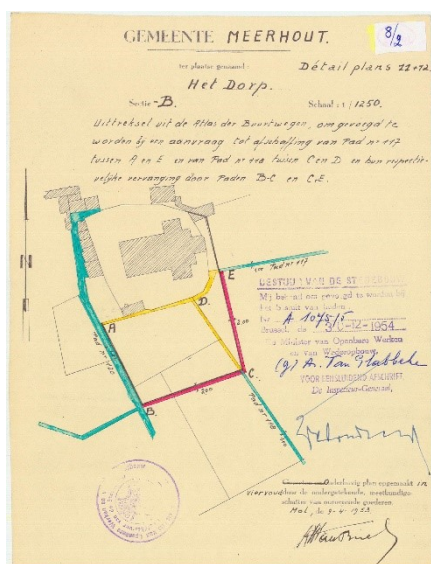 8/2
GEMEENTE MEERHOUT.
ter plaatse genaamd
Détail plans 11+12.
Het Dorp.
Sectie - B.
Schaal : 1 / 1250.
Uittreksel uit de Atlas der Buurtwegen, om gevoegd te
worden bij een aanvraag tot afschaffing van Pad nr 117
tussen A en E en van Pad nr 118 tussen C en D en hun respectie-
velijke vervanging door Paden B-C en C-E.
Pad nr 117
E
D.
A
2.00
C.
B.
2.00
Pad nr 118
BESTUUR VAN DE STEDEBOUW
Mij bekend om gevoegd te worden bij
het besluit van heden
nr A 1075/5
Brussel, de 30-12-1954
De Minister van Openbare Werken
en van Wederopbouw,
(g) A. Van Glabbeke
VOOR EENSLUIDEND AFSCHRIFT
De Inspecteur-Generaal,
Onderhavig plan opgemaakt in
viervoud door de ondergetekende, meetkundige-
schatter van onroerende goederen
Mol, de 9-4-1953